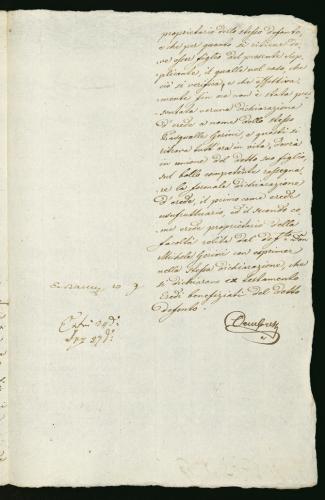 proprietario dello stesso defonto,
e che per quanto si ritiene do-
ve esser figlio del presente Sup-
plicante, il quale nel caso che
ciò si verifica, e che effettiva-
mente fin ora non è stata pre-
sentata veruna dichiarazione
d'erede a nome dello stesso
Pasquale Gorini, e quando si
ritrova tutt'ora in vita, dovrà
in unione del detto suo figlio,
sul bollo competente rassegna-
re la formale dichiarazione
d'erede, il primo come erede
usufruttuario, ed il secondo co-
me erede proprietario della
facoltà relitta dal def.to Don
Michele Gorini con esprimer
nella stessa dichiarazione, che
si dichiarano ex testamento
eredi beneficiati del detto
defonto.